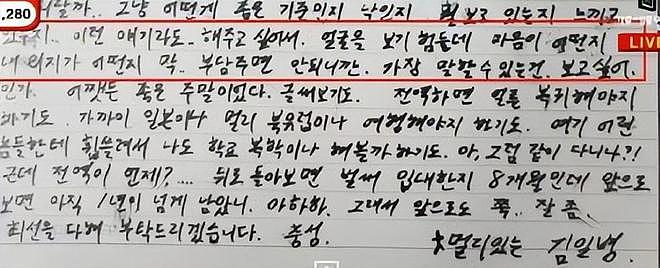 ,280
그냥 어떻게 좋은 기준인지 낙인지 보고 있는지 느끼고
이런 얘기라도.. 해주고 싶어서. 얼굴을 보기 힘든데 마음이 어떤지
LIVE
내 의지가 어떤지 막.. 부담주면 안되니깐. 가장 말할 수 있는건. 보고싶어.
인가. 어쨋든 좋은 주말이었다. 글써보기도. 전역하면 얼른 복귀해야지
하기도. 가까이 일본이나 멀리 북유럽이나 여행해야지 하기도. 여기 어린
놈들한테 휩쓸려서 나도 학교 복학이나 해볼까 하기도. 아, 그럼 같이 다니나?!
근데 전역이 언제?.... 뒤로 돌아보면 벌써 입대한지 8개월인데 앞으로
보면 아직 1년이 넘게 남았니. 아하하. 그래서 앞으로도 쭉.. 잘 좀.
최선을 다해 부탁드리겠습니다. 충성. 멀리있는 김일병.